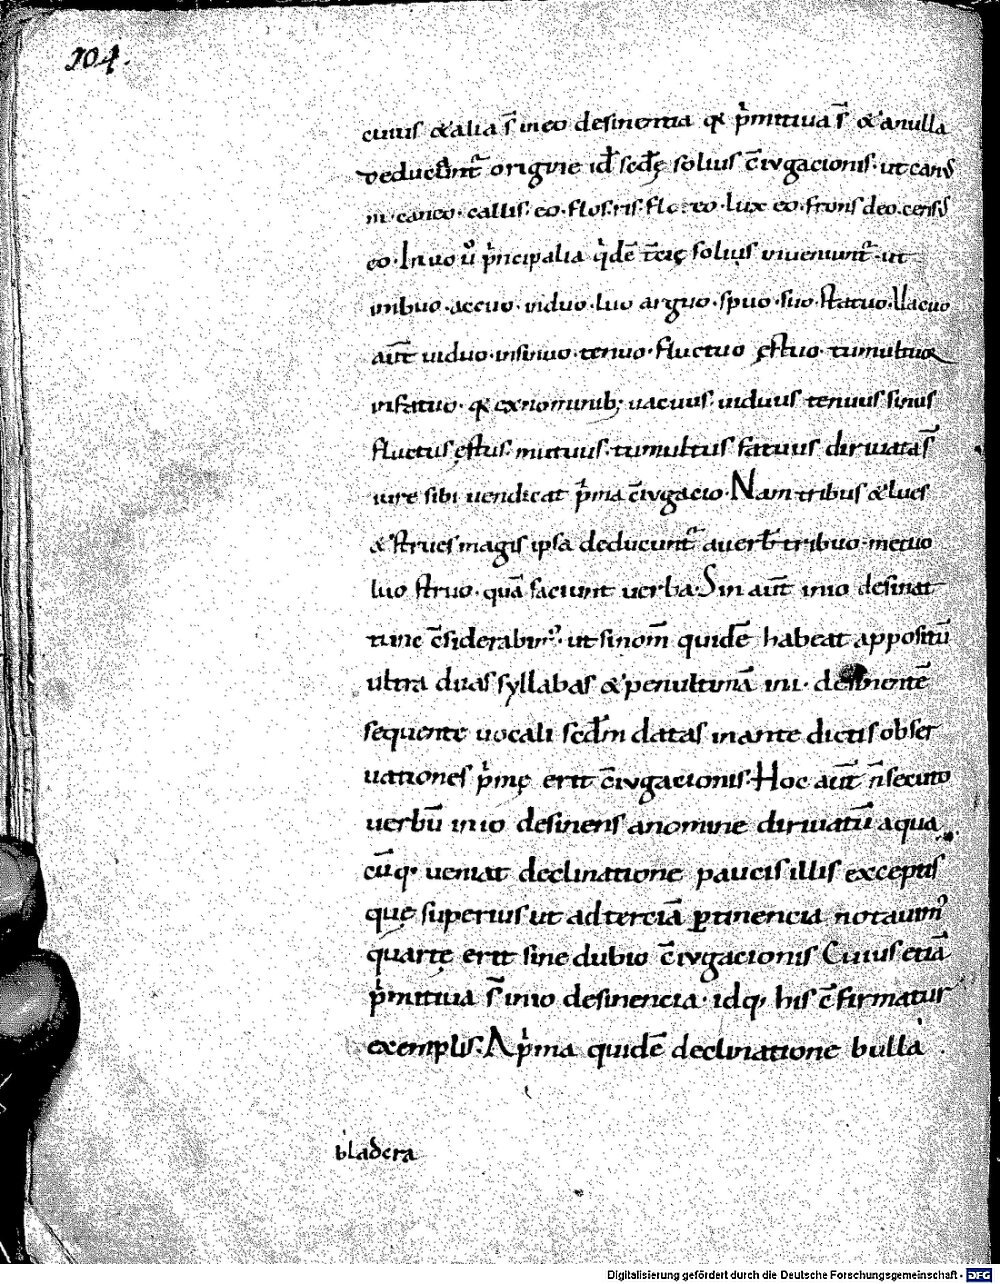 204.
cuius & alia s̄ in eo desinentia q̨ p̓mitiua s̄ & a nulla
deducunt᷑ origine id sedę solius c̄iugacionis· ut cand
in· caneo· callis· eo· flos· ris· flo· reo· lux eo· frons deo· censeo
eo· In uo u̓ p̓ncipalia q̓dē t̄cię solius inueniunt᷑· ut
imbuo· accuo· induo· luo arguo· spuo· suo· statuo· Uacuo
aut̄ uiduo· insinuo· tenuo· fluctuo ęstuo· tumultuo
infatuo· q̨ ex nominib; uacuus· uiduus tenuus sinus
fluctus ęstus· mutuus· tumultus fatuus diriuata s̄
iure sibi uendicat p̓ma c̄iugacio· Nam tribus & lues
& strues magis ipsa deducunt᷑ a uerb̄ tribuo· metuo
luo struo· quā faciunt uerba· Sin aut̄ in io desinat
tunc c̄siderabim᷒· ut si nom̄ quidē habeat appositū
ultra duas syllabas & penultimā in i· desinentē
sequente uocali sed̄m datas in ante dictis obser
uationes p̓mę erit c̄iugacionis· Hoc aut̄ n̄ secuto
uerbū in io desinens a nomine diriuatū a qua
cūq· ueniat declinatione paucis illis exceptis
quę superius ut ad terciā ꝑtinencia notauim᷒
quartę erit sine dubio c̄iugacionis Cuius etiā
p̓mitiua s̄ in io desinencia· idq· his c̄firmatur
exemplis· A p̓ma quidē declinatione bulla ·
bladera
Digitalisierung gefördert durch die Deutsche Forschungsgemeinschaft - DFG